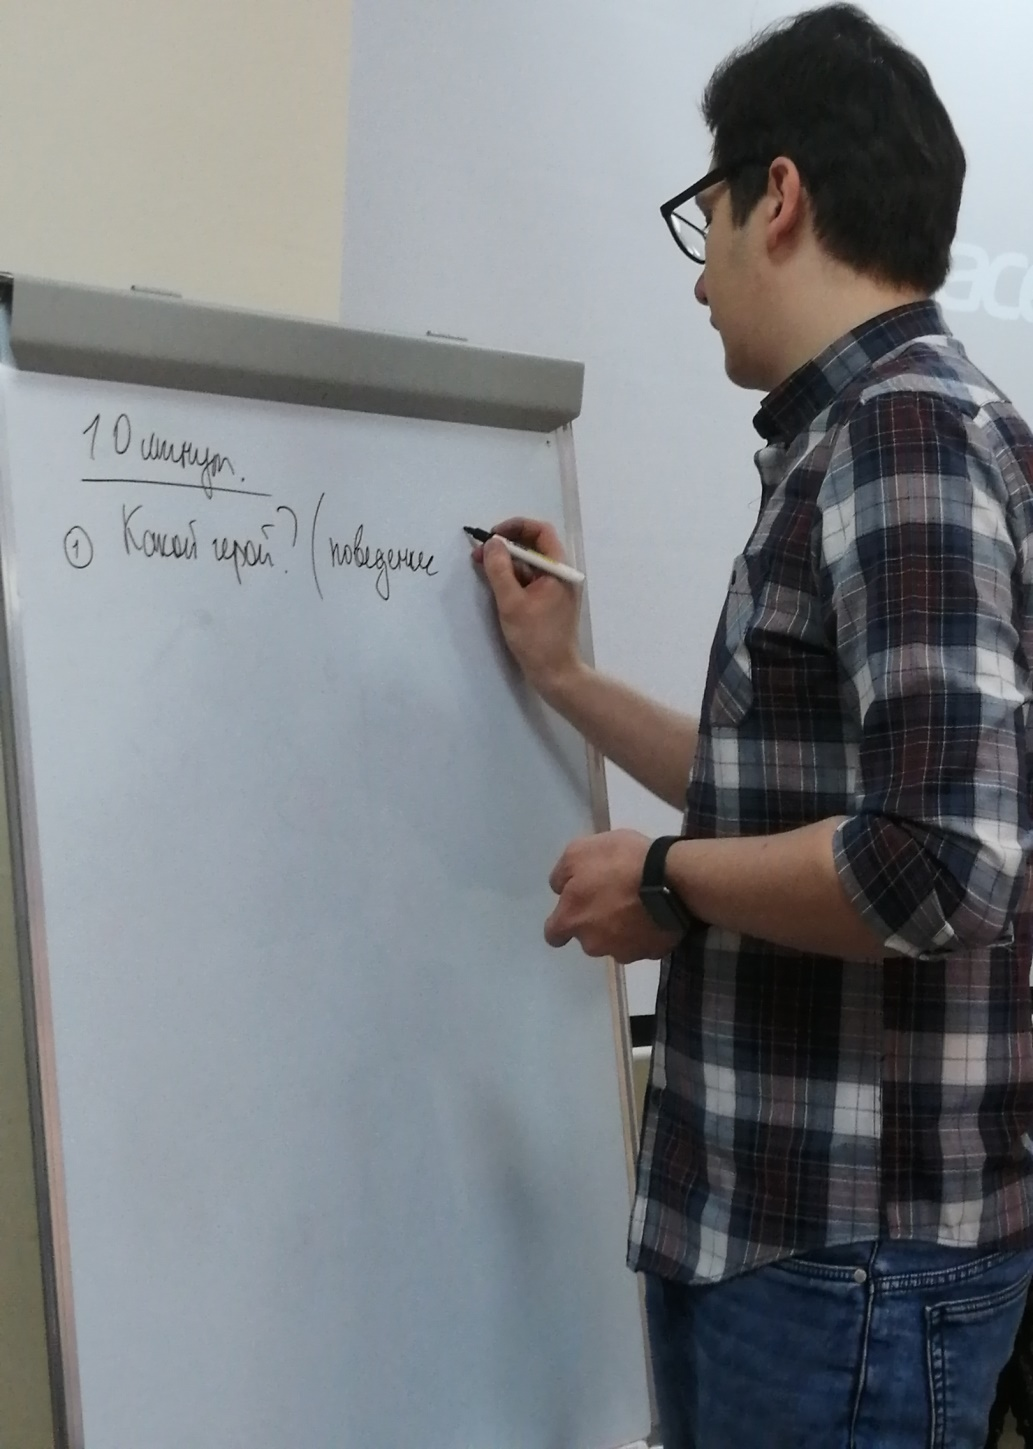 10 минут.
① Какой герой? (поведение